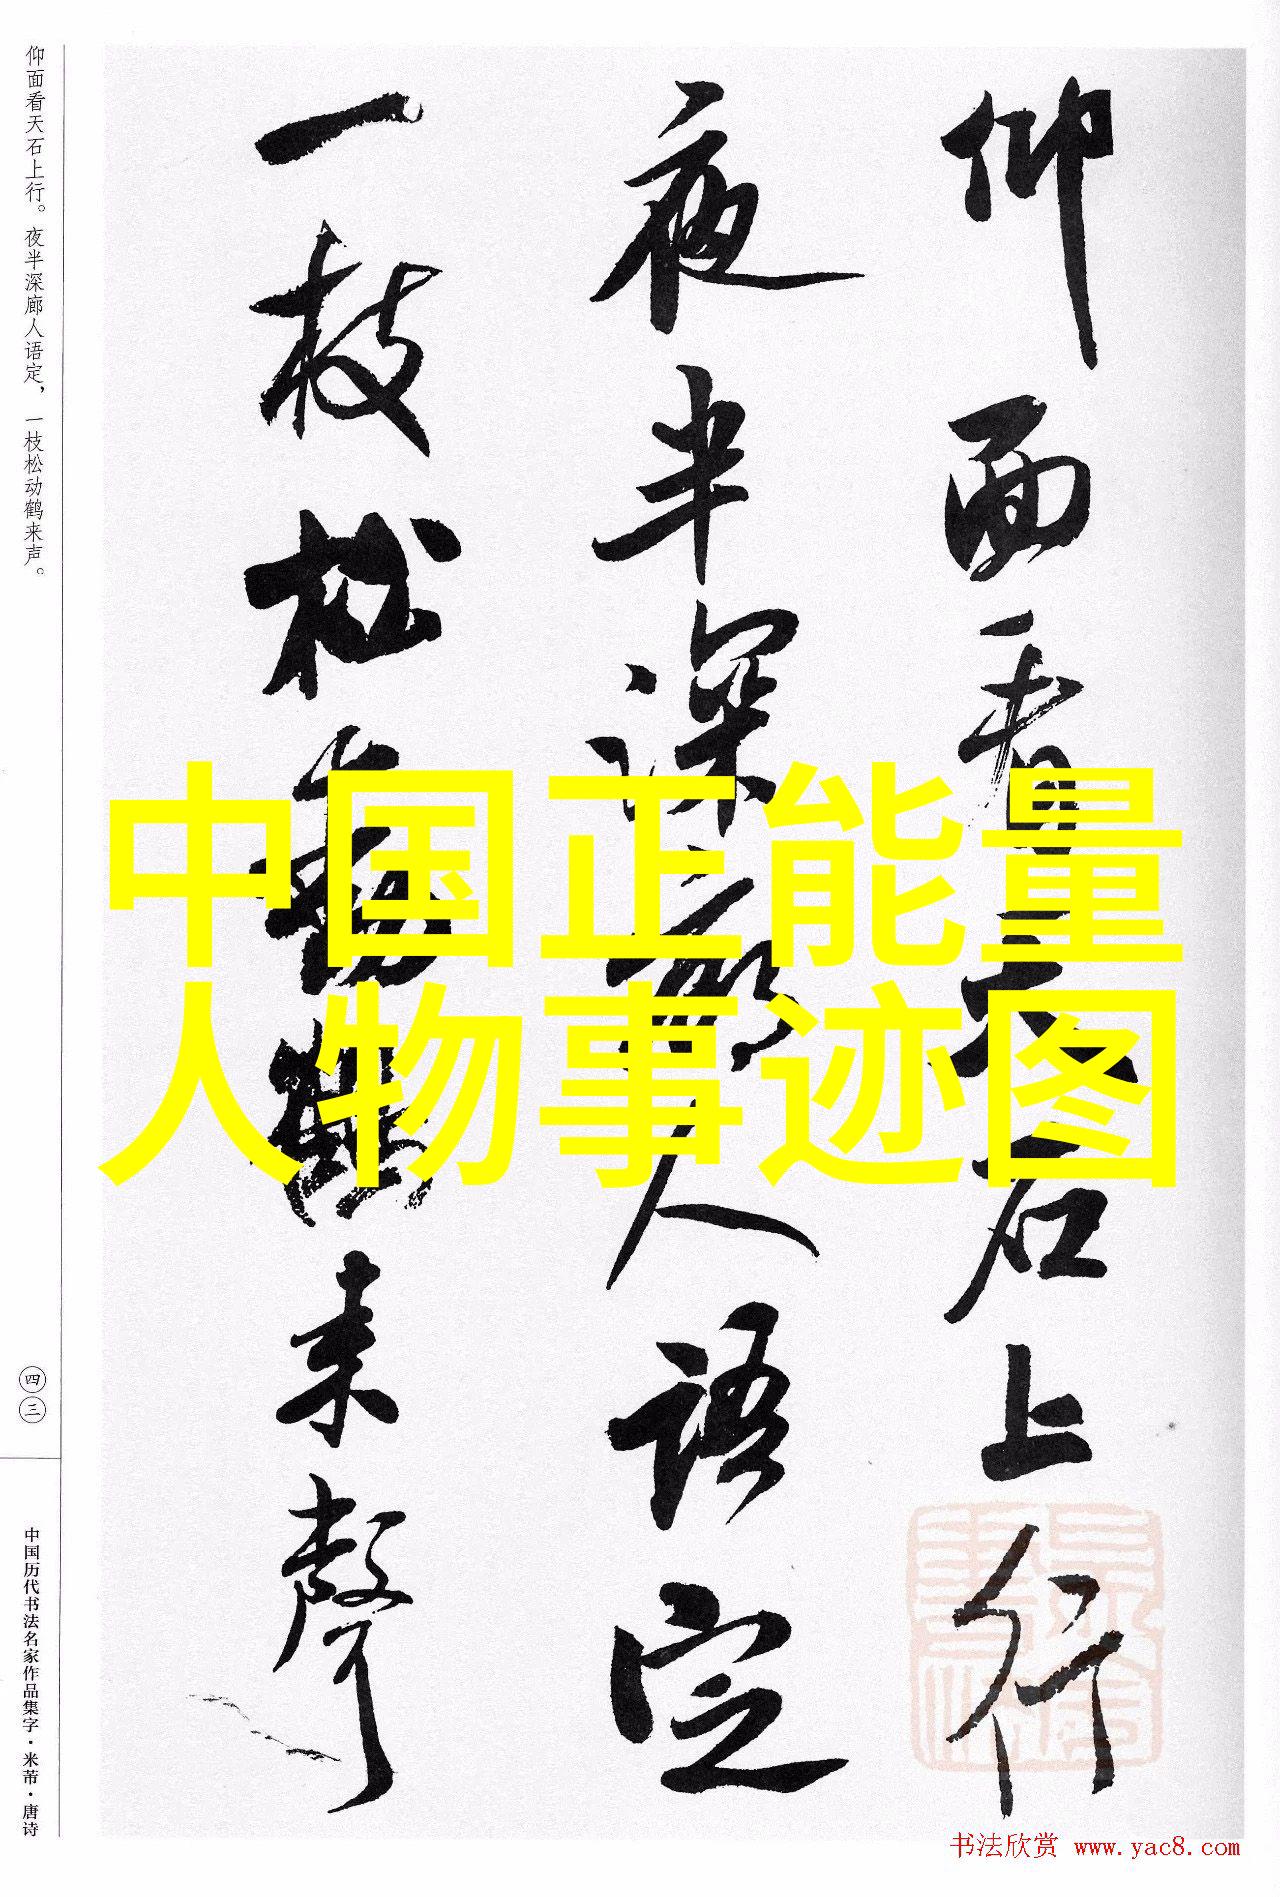 仰面看天石上行
夜半深廊人語定
一枝松動鶴来聲
中国正能量
人物事迹图
仰面看天石上行。夜半深廊人语定，一枝松动鹤来声。
四三
中国历代书法名家作品集字·米芾·唐诗
书法欣赏 www.yac8.com